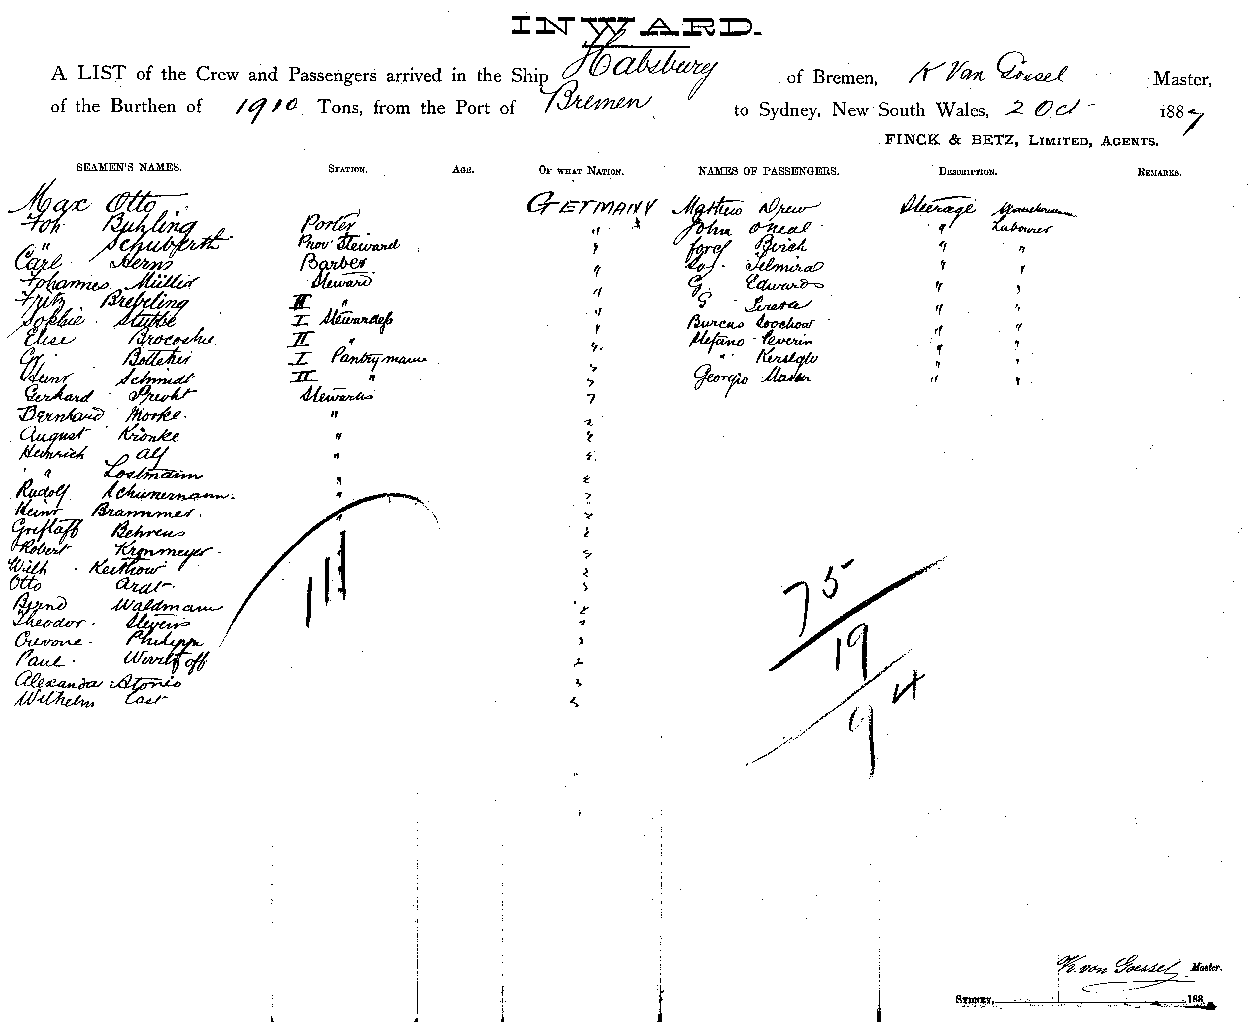 INWARD.
A LIST of the Crew and Passengers arrived in the Ship Habsburg of Bremen, K Van Gossel Master,
of the Burthen of 1910 Tons, from the Port of Bremen to Sydney, New South Wales, 2 Oct 1887
FINCK & BETZ, LIMITED, AGENTS.
SEAMEN'S NAMES. STATION. AGE. OF WHAT NATION. NAMES OF PASSENGERS. DESCRIPTION. REMARKS.
Max Otto GERMANY Mathew Drew Steerage
Joh Buhling Porter " John Oneal " Labourer
" Schuberth Prov Steward " Birch " "
Carl Herns Barber " " "
Johannes Müller Steward " G. Edwards " "
Fritz Brebeling II " " G " "
Sophie Stubbe I Stewardess " " "
Elise II " " Stefano Severin " "
Gg. I Pantryman " " " "
Heinr Schmidt II " " Georgio " "
Gerhard Stewards "
Bernhard " "
August Kronke " "
Heinrich Alf " "
" Lostmann " "
Rudolf Schünemann. " "
Heinr Brammer. " "
Behrens "
Robert Kronmeyer "
Wilh "
Otto "
Bernd Waldmann "
Theodor Stevens "
Philipp "
Paul "
Alexander "
Wilhelm Cast "
75
19
94
K. von Goessel Master.
SYDNEY, 188